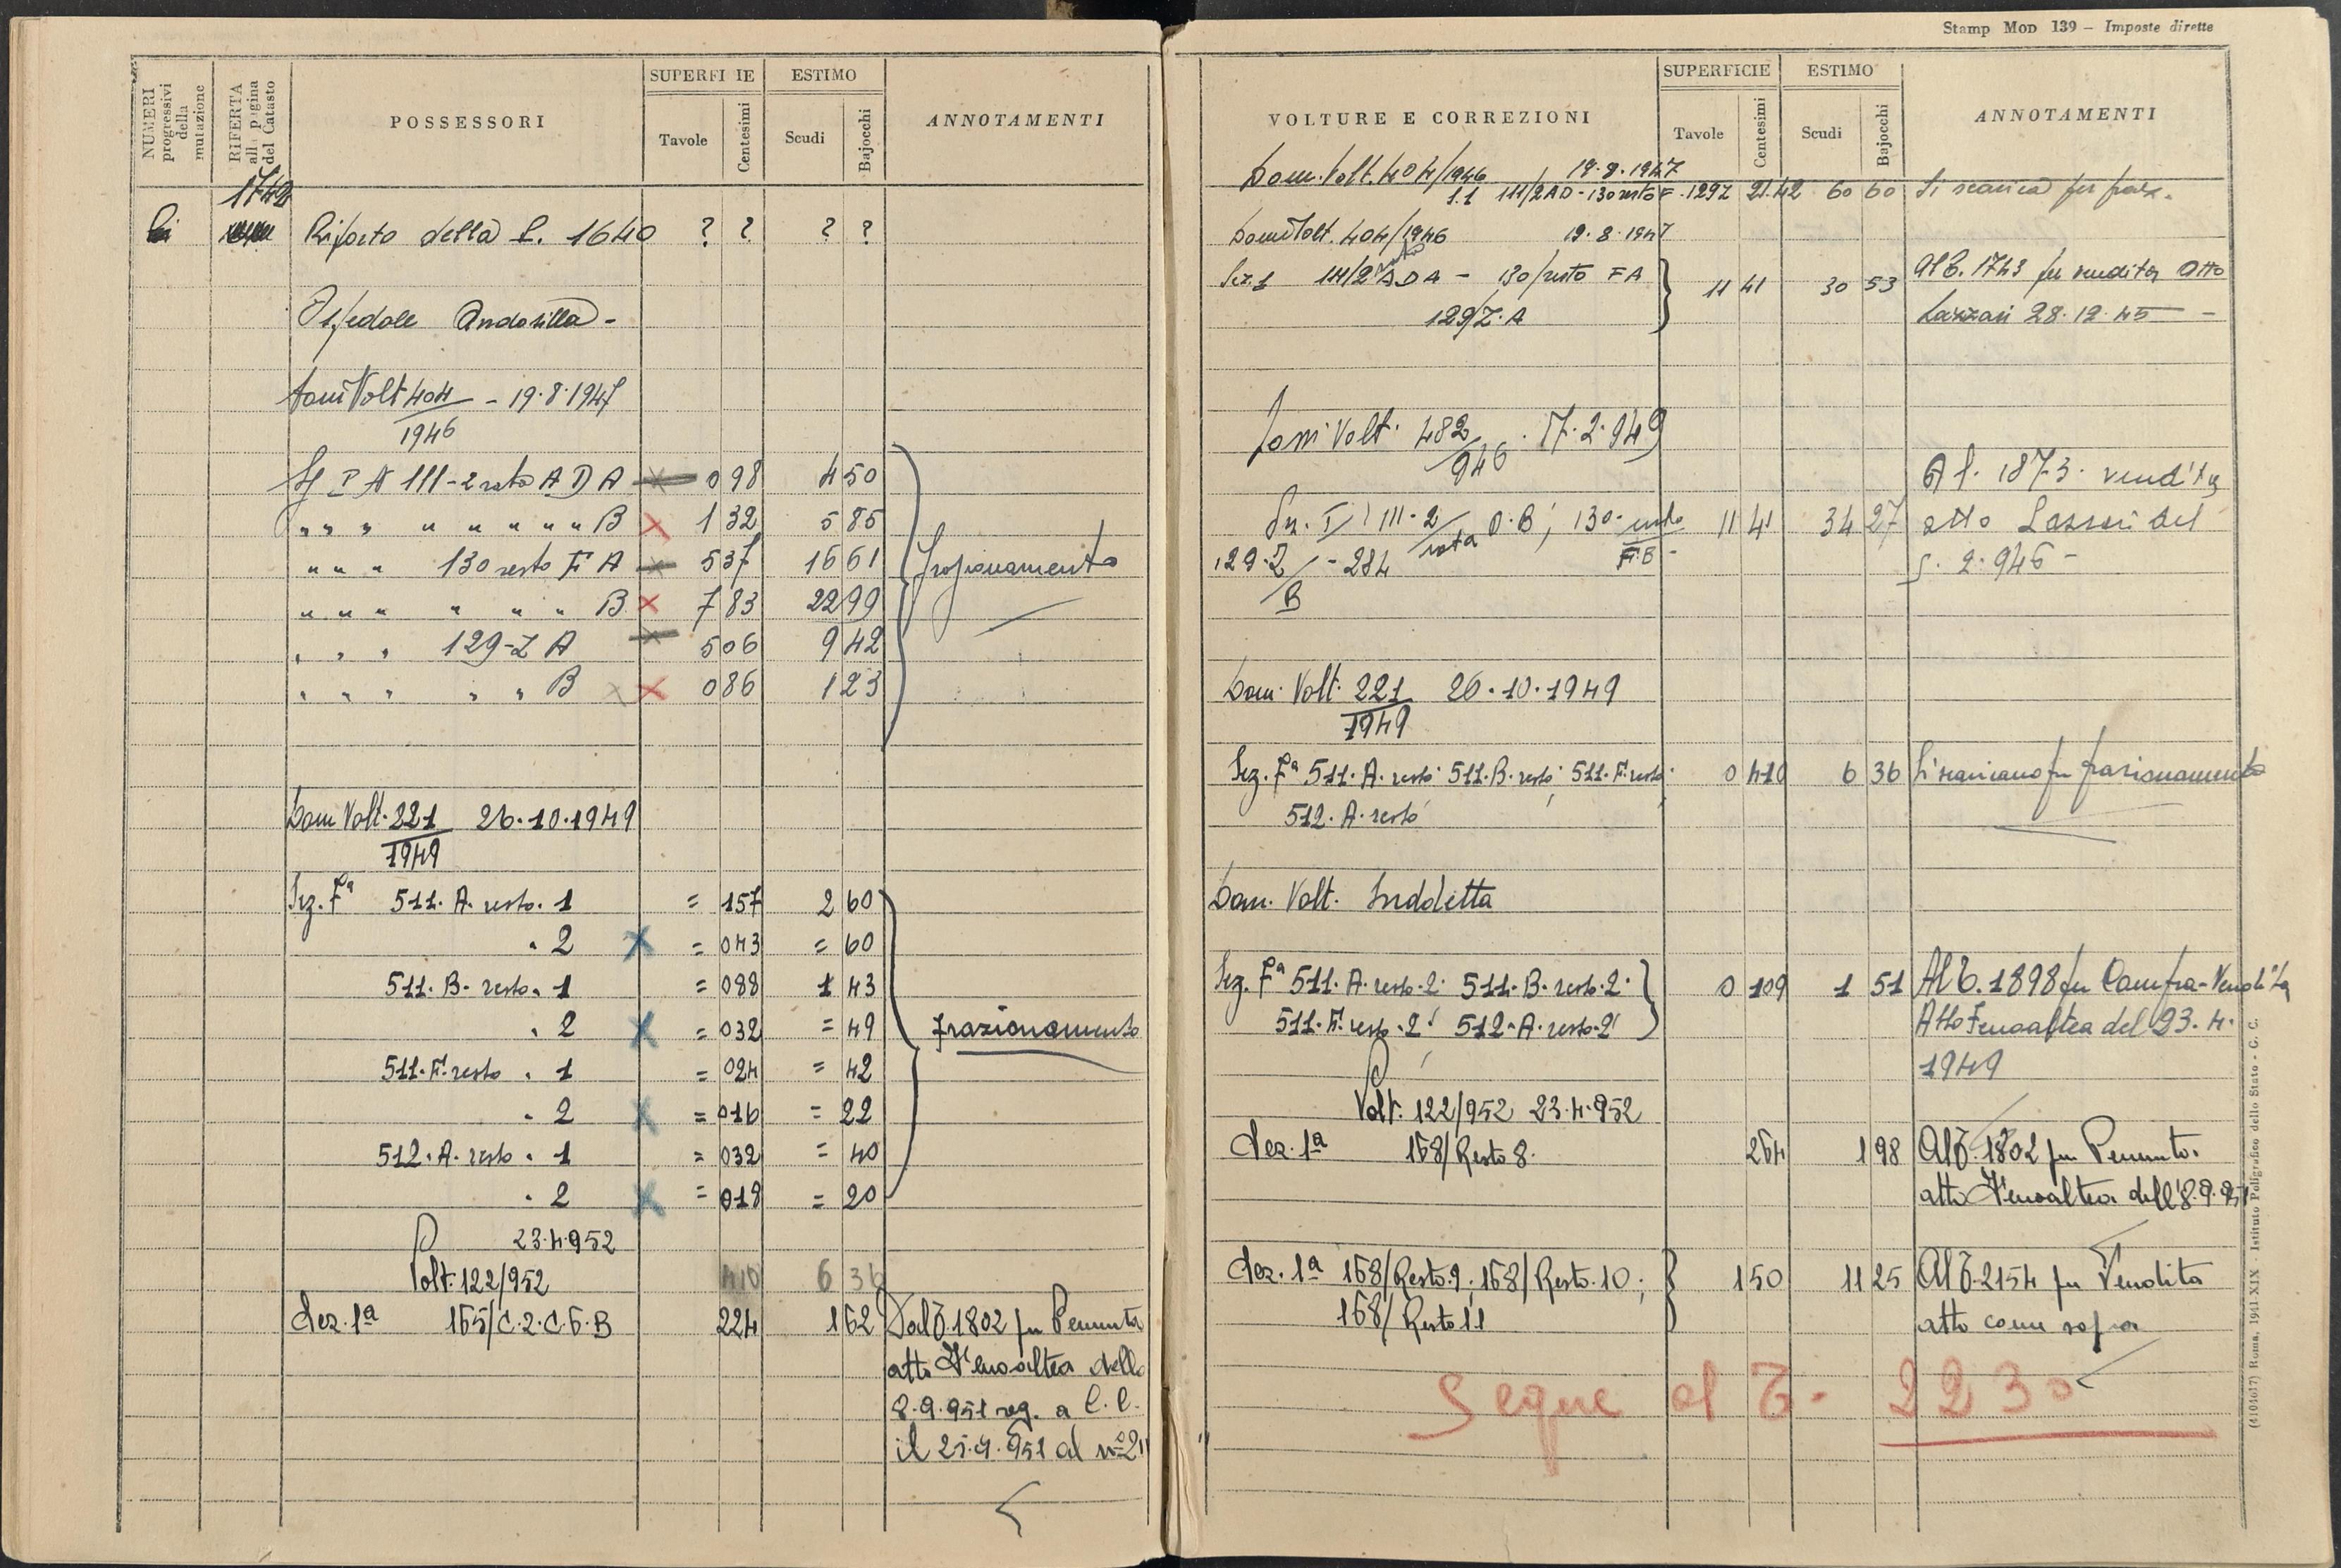 NUMERI progressivi della mutazione
RIFERTA alla pagina del Catasto
POSSESSORI
SUPERFI IE
Tavole
Centesimi
ESTIMO
Scudi
Bajocchi
ANNOTAMENTI
1742
Riporto della P. 1640 ? ? ? ?
Ospedale Andosilla -
Dom Volt 404/1946 - 19.8.1947
111-2 resto A D A 0 98 4 50
" " " " " " " " B 1 32 5 85
" " " 130 resto F A 5 37 16 61
" " " " " " B 7 83 22 99
" " " 129-Z A 5 06 9 42
" " " " " B 0 86 1 23
frazionamento
Dom Volt. 221/1949 26.10.1949
Sez. Iª 511. A. resto. 1 = 157 2 60
" 2 = 043 = 60
511. B. resto. 1 = 088 1 43
" 2 = 032 = 49
frazionamento
511. F. resto . 1 = 024 = 42
" 2 = 016 = 22
512. A. resto . 1 = 032 = 40
" 2 = 018 = 20
23.4.952
Volt. 122/952
410 6 36
Sez. 1ª 165/C.2.C.F.B 224 1 62 Dal T. 1802 per Permuta
atto Fenoaltea dello
8.9.951 reg. a C.C.
il 25.9.951 al n° 211
Stamp Mod 139 - Imposte dirette
VOLTURE E CORREZIONI
SUPERFICIE
Tavole
Centesimi
ESTIMO
Scudi
Bajocchi
ANNOTAMENTI
Dom. Volt. 404/1946 19.8.1947
111/2AD - 130 resto F - 129Z 21.42 60 60 Si scarica per fraz.
Dom Volt. 404/1946 19.8.1947
Sez. 1 111/2 resto A D A - 130/resto F A 11 41 30 53 Al T. 1743 per vendita Atto
129/Z.A Lazzari 28.12.45 -
Dom Volt. 482/946 . 17.2.949
Al T. 1873. vendita
Sez. I 111-2/resto D.B; 130-resto/F.B - 11 41 34 27 atto Lazzari del
129.Z/B - 284 5.2.946 -
Dom. Volt. 221/1949 26.10.1949
Sez. Iª 511. A. resto; 511. B. resto; 511. F. resto; 0 410 6 36 Si scaricano per frazionamento
512. A. resto
Dom. Volt. Suddetta
Sez. Iª 511. A. resto. 2; 511. B. resto. 2; 0 109 1 51 Al T. 1898 per Compra-Vendita
511. F. resto. 2; 512. A. resto. 2; Atto Fenoaltea del 23.4.
1949
Volt. 122/952 23.4.952
Sez. 1ª 168/Resto 8. 264 1 98 Al T. 1802 per Permuta.
atto Fenoaltea dell'8.9.951
Sez. 1ª 168/Resto.9; 168/Resto.10; 1 50 11 25 Al T. 2154 per Vendita
168/Resto 11 atto come sopra
Segue al T. 2230
(4104017) Roma, 1941 XIX - Istituto Poligrafico dello Stato - C. C.